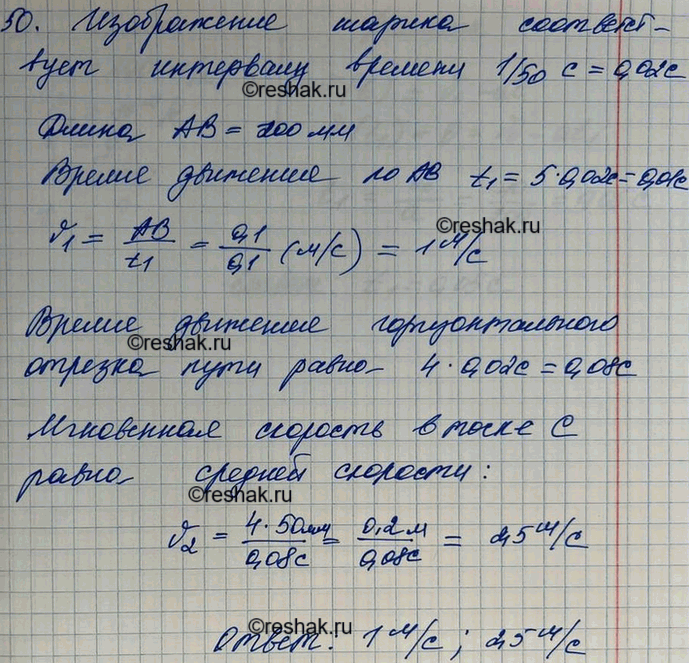 50. Изображение шарика соответст-
вует интервалу времени 1/50 с = 0,02с
©reshak.ru
Длина AB = 100 мм
Время движения по AB t₁ = 5·0,02с = 0,08с
©reshak.ru
v₁ = AB/t₁ = 0,1/0,1 (м/с) = 1 м/с
Время движения горизонтального
©reshak.ru
отрезка пути равно 4·0,02с = 0,08с
Мгновенная скорость в точке С
равна средней скорости:
©reshak.ru
v₂ = 4·50мм/0,08с = 0,2м/0,08с = 2,5 м/с
©reshak.ru
Ответ: 1 м/с ; 2,5 м/с